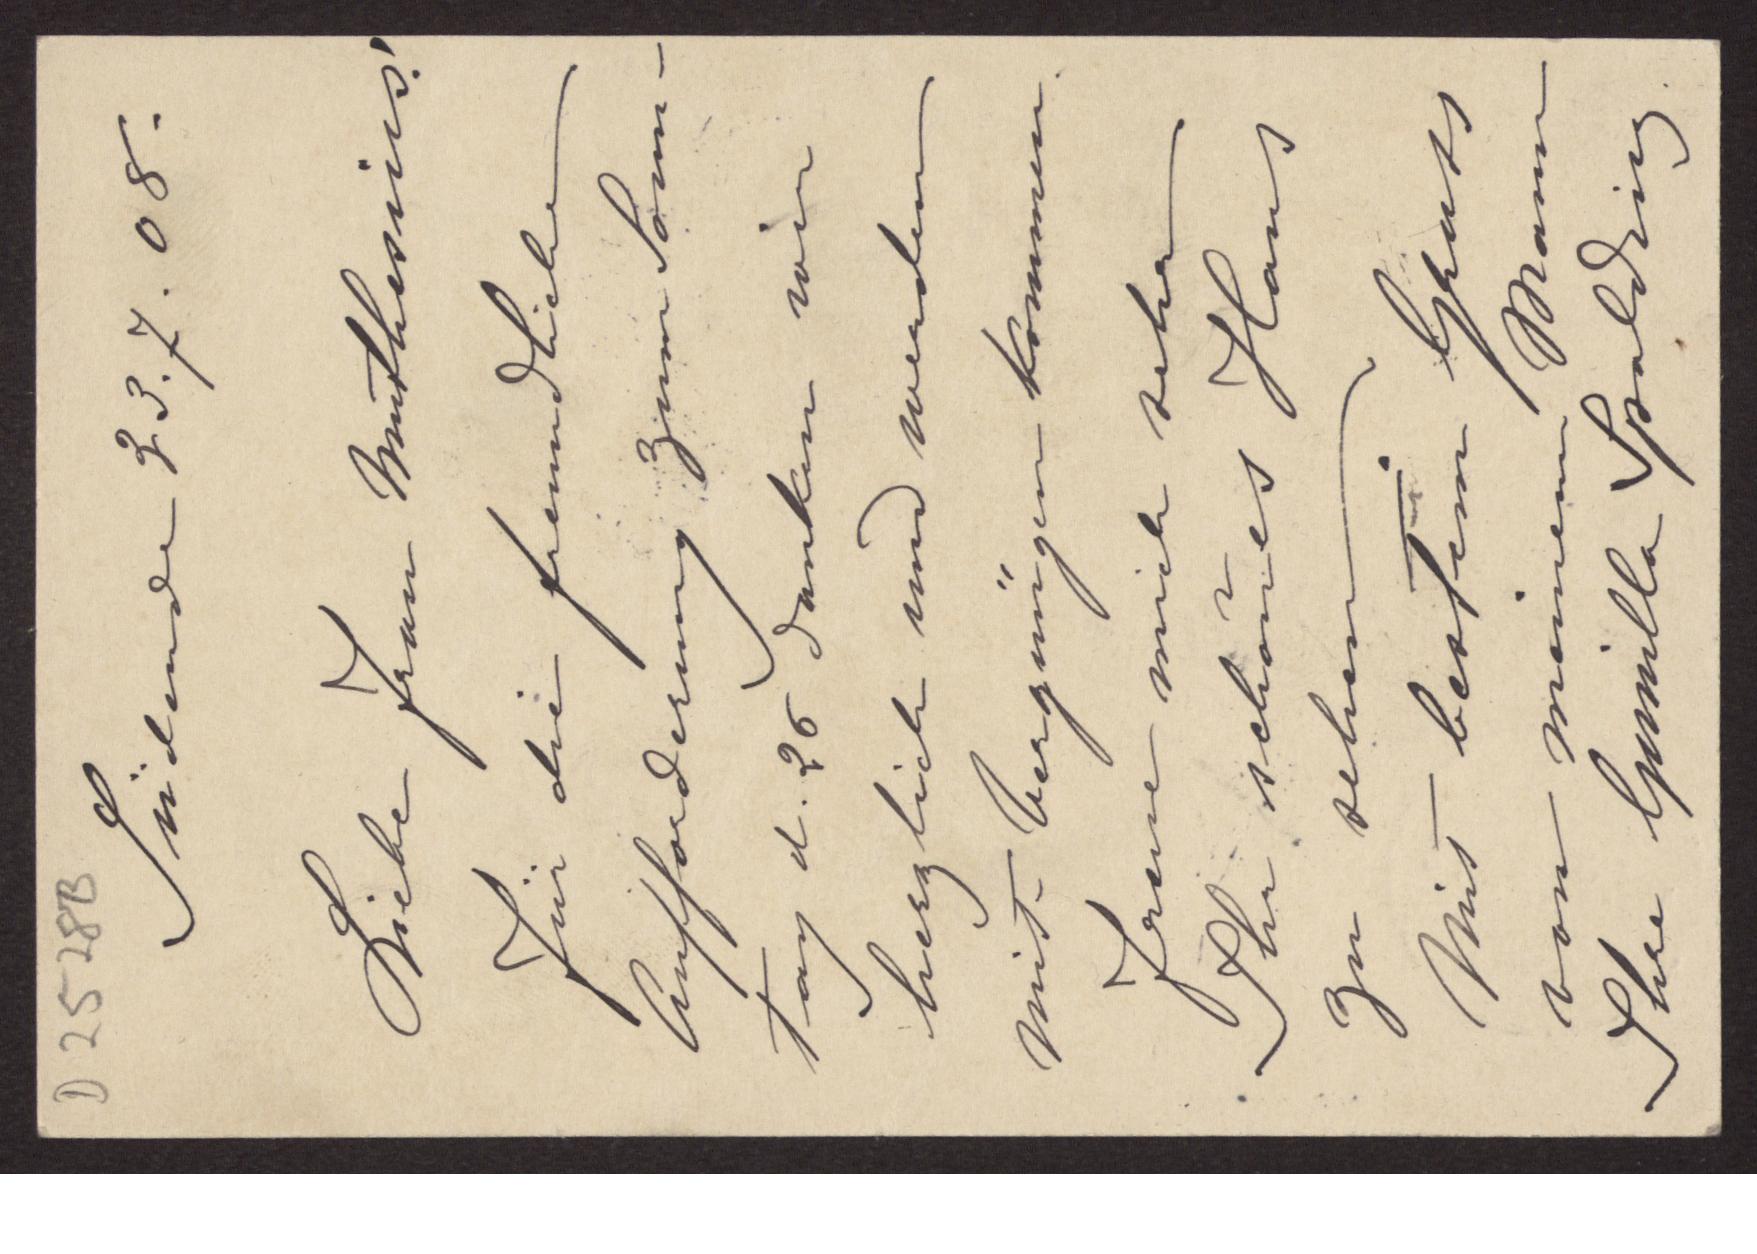 D 2528B
Südende 23.7.08.
Liebe Frau Muthesius!
Für die freundliche
Aufforderung zum Sonn-
tag d. 26 danken wir
herzlich und werden
mit Vergnügen kommen.
Freue mich sehr
Ihr schönes Haus
zu sehen
Mit bestem Gruss
von meinem Mann
Ihre Gunilla Spalding.